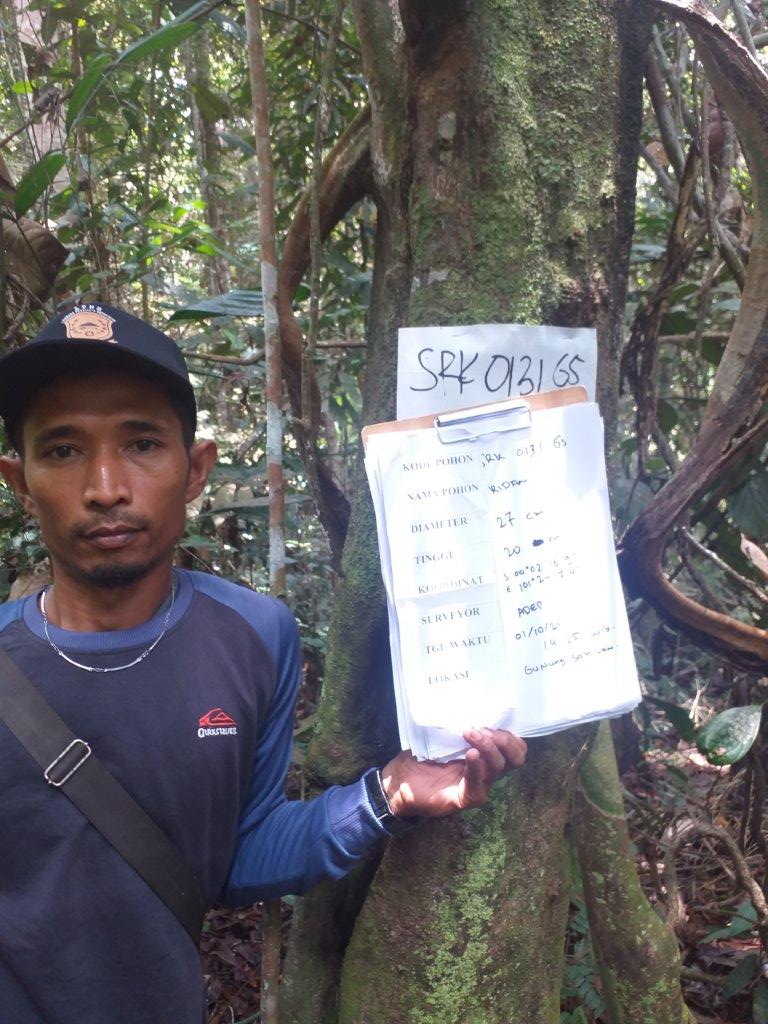 SRK 0131 GS
KODE POHON SRK 0131 GS
NAMA POHON
DIAMETER 27 cm
TINGGI 20 m
KOORDINAT S 00°02'
E 101°
SURVEYOR ADEP
TGL WAKTU 01/10/21
14 25 WIB
LOKASI GUNUNG
QUIKSILVER